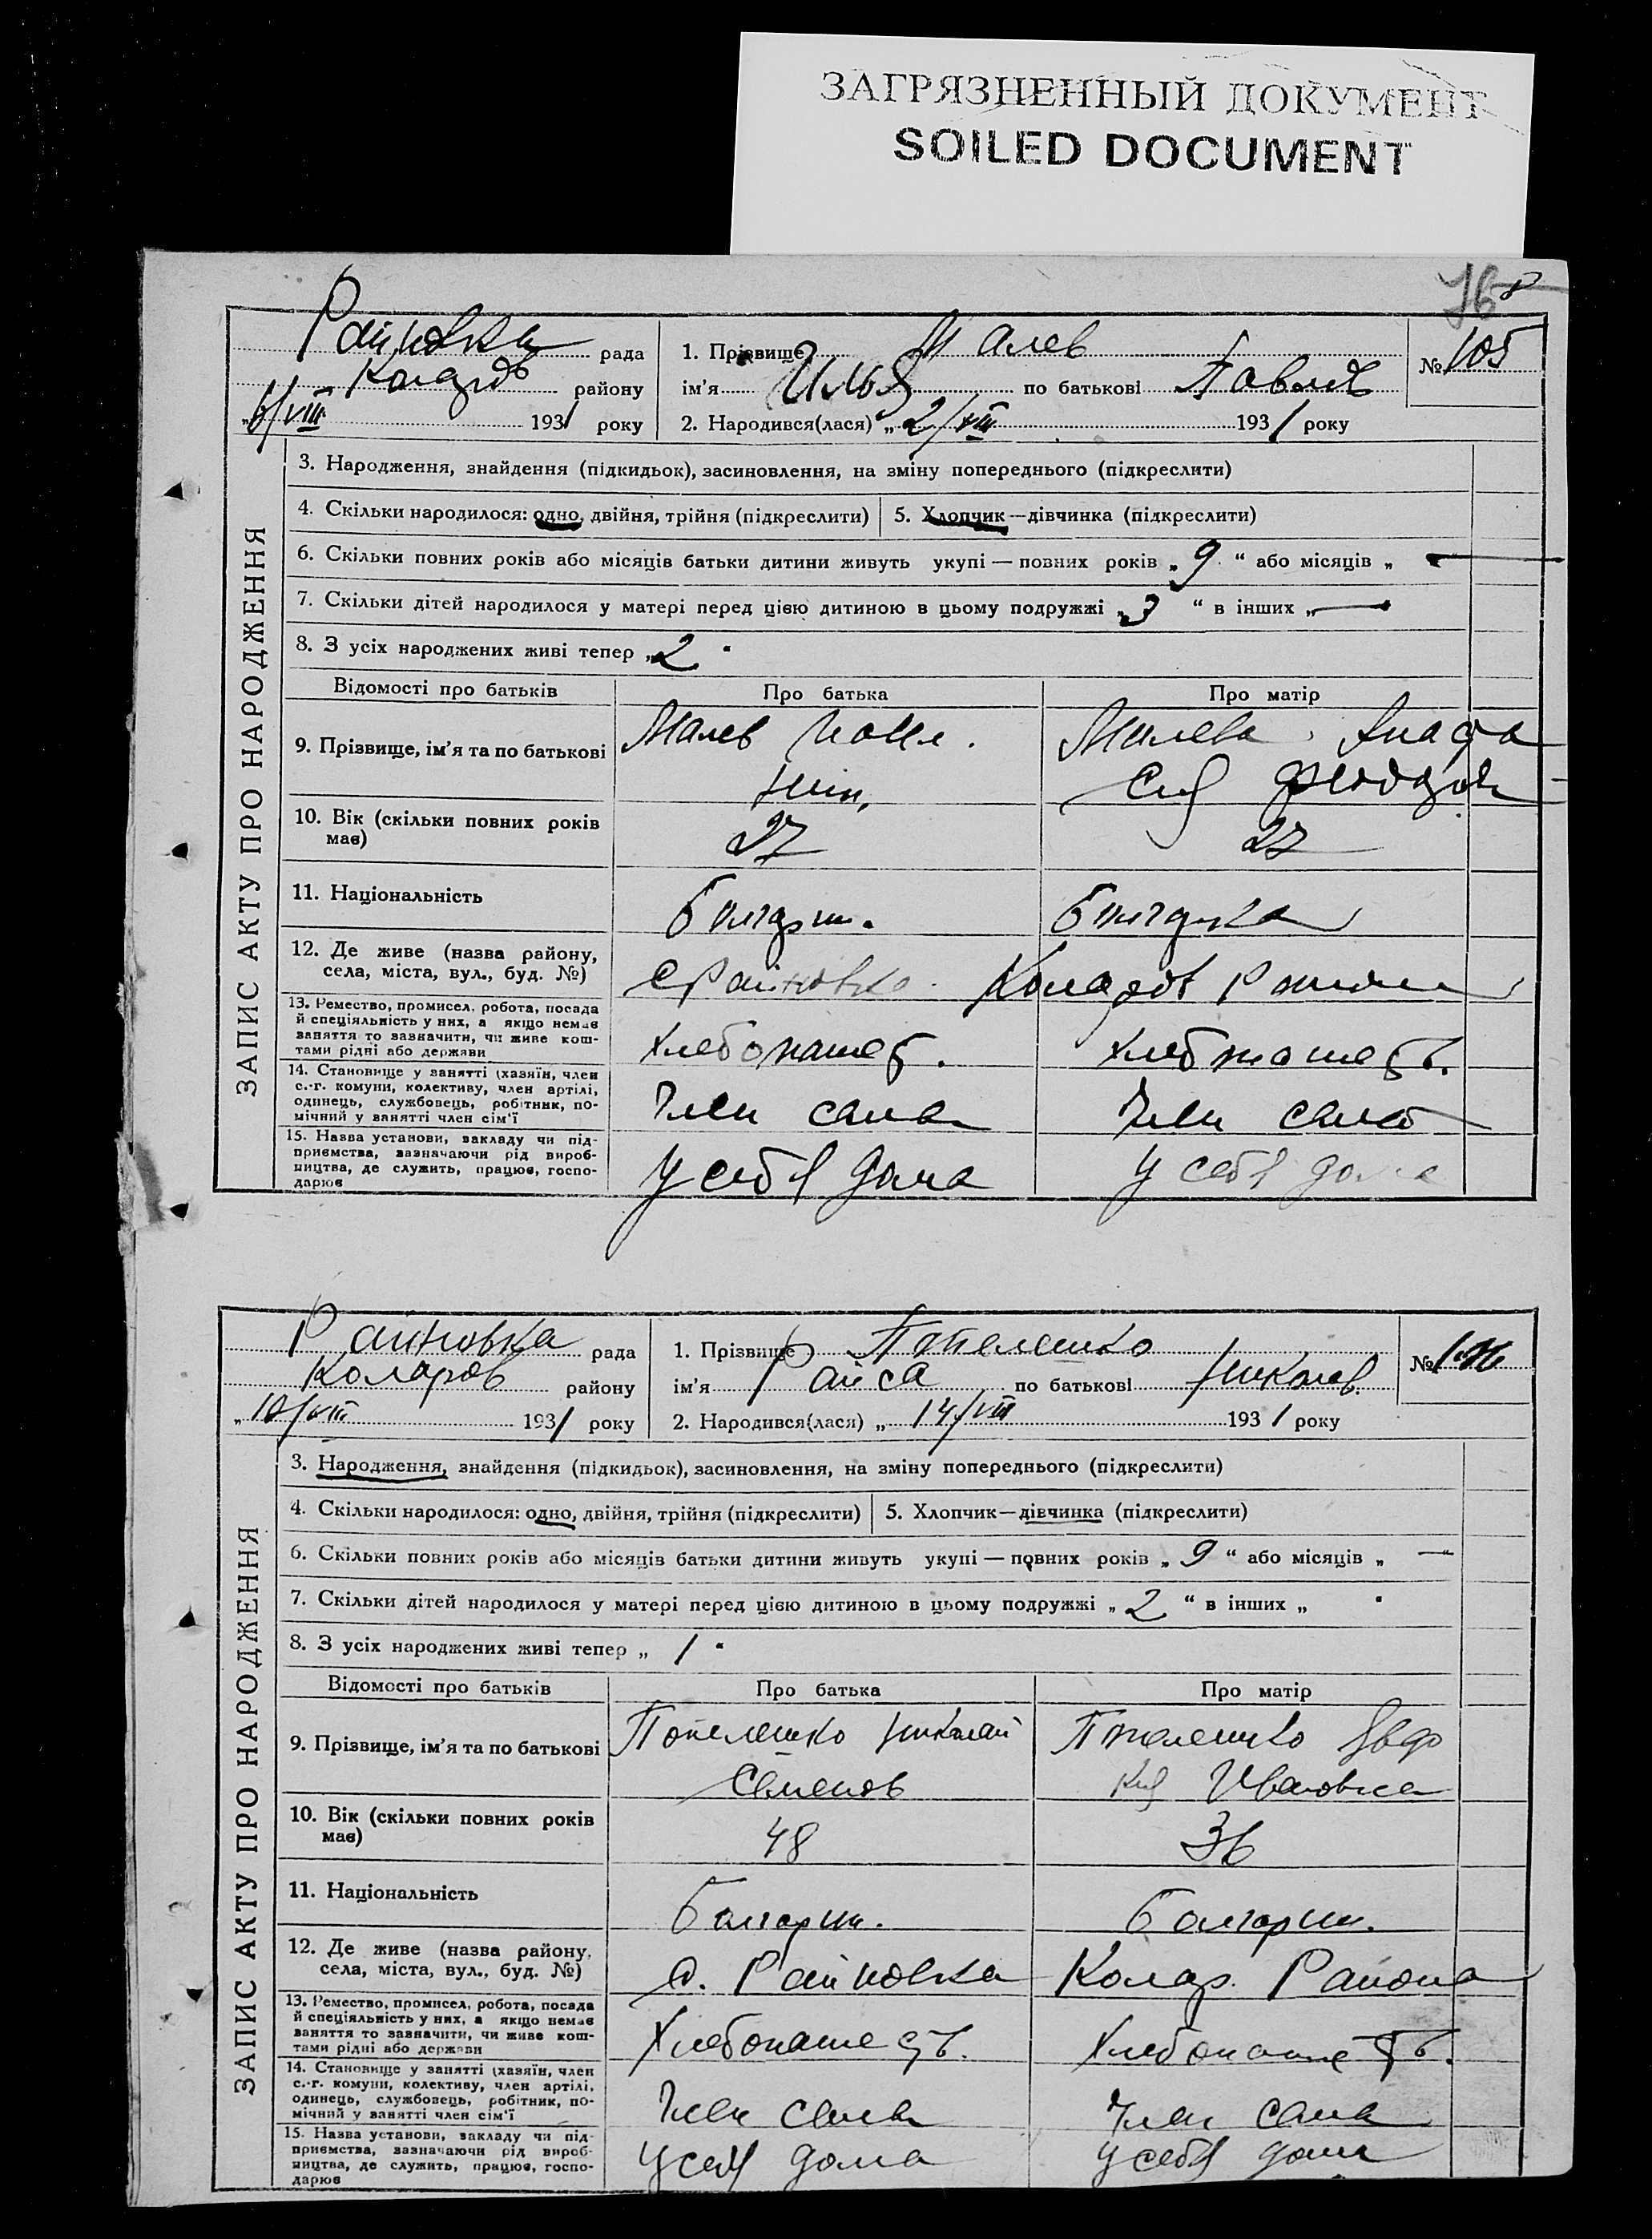 ЗАГРЯЗНЕННЫЙ ДОКУМЕНТ
SOILED DOCUMENT
76
Райновка рада
Коларов району
6/VIII 1931 року
1. Прізвище Малев
ім'я Илья по батькові Павлов
2. Народився(лася) „2/VIII 1931 року
№ 105
ЗАПИС АКТУ ПРО НАРОДЖЕННЯ
3. Народження, знайдення (підкидьок), засиновлення, на зміну попереднього (підкреслити)
4. Скільки народилося: одно, двійня, трійня (підкреслити) 5. Хлопчик—дівчинка (підкреслити)
6. Скільки повних років або місяців батьки дитини живуть укупі — повних років „9“ або місяців „ —
7. Скільки дітей народилося у матері перед цією дитиною в цьому подружжі „3“ в інших „ —
8. З усіх народжених живі тепер „2“
Відомості про батьків Про батька Про матір
9. Прізвище, ім'я та по батькові Малев Малева
10. Вік (скільки повних років має) 27 27
11. Національність Болгарин. Болгарка
12. Де живе (назва району, села, міста, вул., буд. №) с Райновка Коларов Района
13. Ремество, промисел, робота, посада й спеціяльність у них, а якщо немає заняття то зазначити, чи живе коштами рідні або держави Хлебопашец. Хлебопашец.
14. Становище у занятті (хазяїн, член с.-г. комуни, колективу, член артілі, одинець, службовець, робітник, помічний у занятті член сім'ї Член Член
15. Назва установи, закладу чи підприємства, зазначаючи рід виробництва, де служить, працює, господарює У себя дома У себя дома
Райновка рада
Коларов району
„ 1931 року
1. Прізвище Попелешко
ім'я Раиса по батькові Николаев.
2. Народився(лася) „ 14/VIII 1931 року
№ 106
ЗАПИС АКТУ ПРО НАРОДЖЕННЯ
3. Народження, знайдення (підкидьок), засиновлення, на зміну попереднього (підкреслити)
4. Скільки народилося: одно, двійня, трійня (підкреслити) 5. Хлопчик—дівчинка (підкреслити)
6. Скільки повних років або місяців батьки дитини живуть укупі — повних років „ 9 “ або місяців „ — “
7. Скільки дітей народилося у матері перед цією дитиною в цьому подружжі „ 2 “ в інших „
8. З усіх народжених живі тепер „ 1 “
Відомості про батьків Про батька Про матір
9. Прізвище, ім'я та по батькові Попелешко Николай Попелешко Евдо
Семенов кия Ивановна
10. Вік (скільки повних років має) 48 36
11. Національність Болгарин. Болгарин.
12. Де живе (назва району, села, міста, вул., буд. №) с. Райновка Колар. Района
13. Ремество, промисел, робота, посада й спеціяльність у них, а якщо немає заняття то зазначити, чи живе коштами рідні або держави Хлебопашец. Хлебопашец.
14. Становище у занятті (хазяїн, член с.-г. комуни, колективу, член артілі, одинець, службовець, робітник, помічний у занятті член сім'ї Член Член
15. Назва установи, закладу чи підприємства, зазначаючи рід виробництва, де служить, працює, господарює У себя дома У себя дома